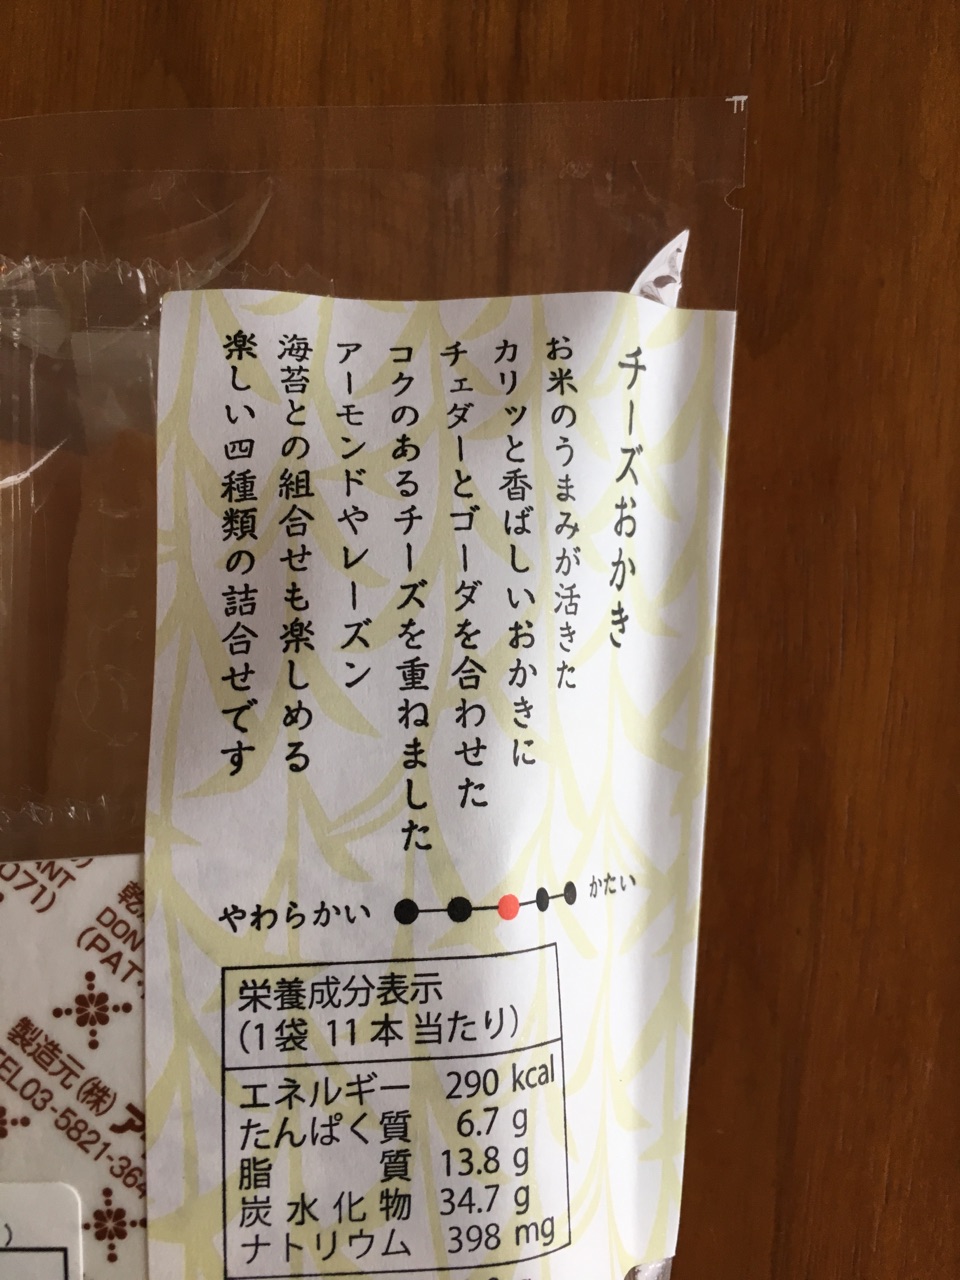 チーズおかき
お米のうまみが活きた
カリッと香ばしいおかきに
チェダーとゴーダを合わせた
コクのあるチーズを重ねました
アーモンドやレーズン
海苔との組合せも楽しめる
楽しい四種類の詰合せです
やわらかい
かたい
栄養成分表示
(1袋 11本当たり)
エネルギー 290 kcal
たんぱく質 6.7 g
脂質 13.8 g
炭水化物 34.7 g
ナトリウム 398 mg
乾
DON
(PAT.
製造元(株)ア
TEL03-5821-364